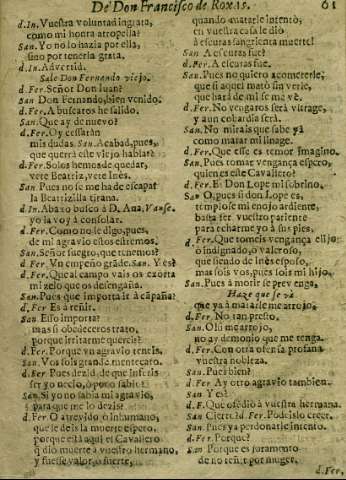 De Don Francisco de Roxas. 61
d.In. Vuestra voluntad ingrata,
como mi honra atropella?
San. Yo no lo hazia por ella,
sino por tenerla grata.
d.In. Advertid.
Sale Don Fernando viejo.
d.Fer. Señor Don Iuan?
San Don Fernando, bien venido.
d.Fer. A buscaros he salido.
San. Que ay de nuevo?
d.Fer. Oy cessarán
mis dudas. San. Acabad, pues,
que querrá este viejo hablar?
d.Fer. Solos hemos de quedar,
vete Beatriz, vete Ines.
San Pues no se me ha de escapar
la Beatrizilla tirana.
d.In. Abaxo busco à D. Ana, Vanse.
yo la voy à consolar.
d.Fer. Como no le digo, pues,
de mi agravio estos estremos.
San. Señor suegro, que tenemos?
d.Fer. Vn empeño grande. San. Y es?
d.Fer. Que al campo vais os exorta
mi zelo que os desengaña.
San. Pues que importa ir à cãpaña?
d.Fer. Es à reñir.
San. Esso importa?
mas si obedeceros trato,
porque irritarme quereis?
d.Fer. Porque vn agravio teneis.
San. Vos sois grande mentecato.
d.Fer. Pues dezid, de que inferis
ser yo necio, ò poco sabio?
San. Si yo no sabia mi agravio,
para que me lo dezis?
d.Fer. O atrevido, ò inhumano,
que le deis la muerte espero,
porque està aqui el Cavallero
q̃ diò muerte à vuestro hermano,
y fuesse valor, ò suerte,
quando matarle intentò,
en vuestra casa le diò
à escuras sangrienta muerte!
San A escuras fue?
d.Fer. A escuras fue.
San. Pues no quiero acometerle;
que si aquel matò sin verle,
que harà de mi si me vè.
d.Fer. No vengaros serà vltrage,
y aun cobardia serà.
San. No mirais que sabe ya
como matar mi linage.
d.Fer. Que esse es temor imagino.
San. Pues tomar vengança espero,
quien es este Cavallero?
d.Fer. Es Don Lope mi sobrino.
San O, pues si don Lope es,
templose mi enojo ardiente,
basta ser vuestro pariente
para echarme yo à sus pies,
d.Fer. Que tomeis vengança elijo
ò indignado, ò valeroso,
que siendo de Ines esposo,
mas sois vos, pues sois mi hijo.
San. Pues à morir se prevenga.
Haze que se và
que ya à matarle me arrojo.
d.Fer. No tan presto.
San. Oy me arrojo,
no ay demonio que me tenga.
d.Fer. Con otra ofensa profana
vuestra nobleza.
San. Pues bien?
d.Fer. Ay otro agravio tambien.
San Y es?
d.F. Que ofediò à vuestra hermana.
San Cierto? d.Fer. Podeislo creer.
San. Pues ya perdonarle intento.
d.Fer. Porque?
San. Porque es juramento
de no reñir por muger.
d.Fer.